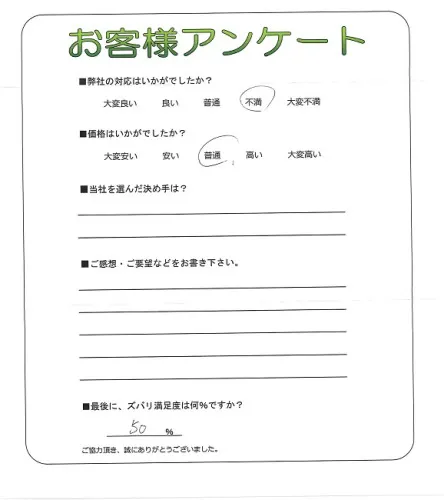 お客様アンケート
■弊社の対応はいかがでしたか？
大変良い 良い 普通 不満 大変不満
■価格はいかがでしたか？
大変安い 安い 普通 高い 大変高い
■当社を選んだ決め手は？
■ご感想・ご要望などをお書き下さい。
■最後に、ズバリ満足度は何％ですか？
50 ％
ご協力頂き、誠にありがとうございました。